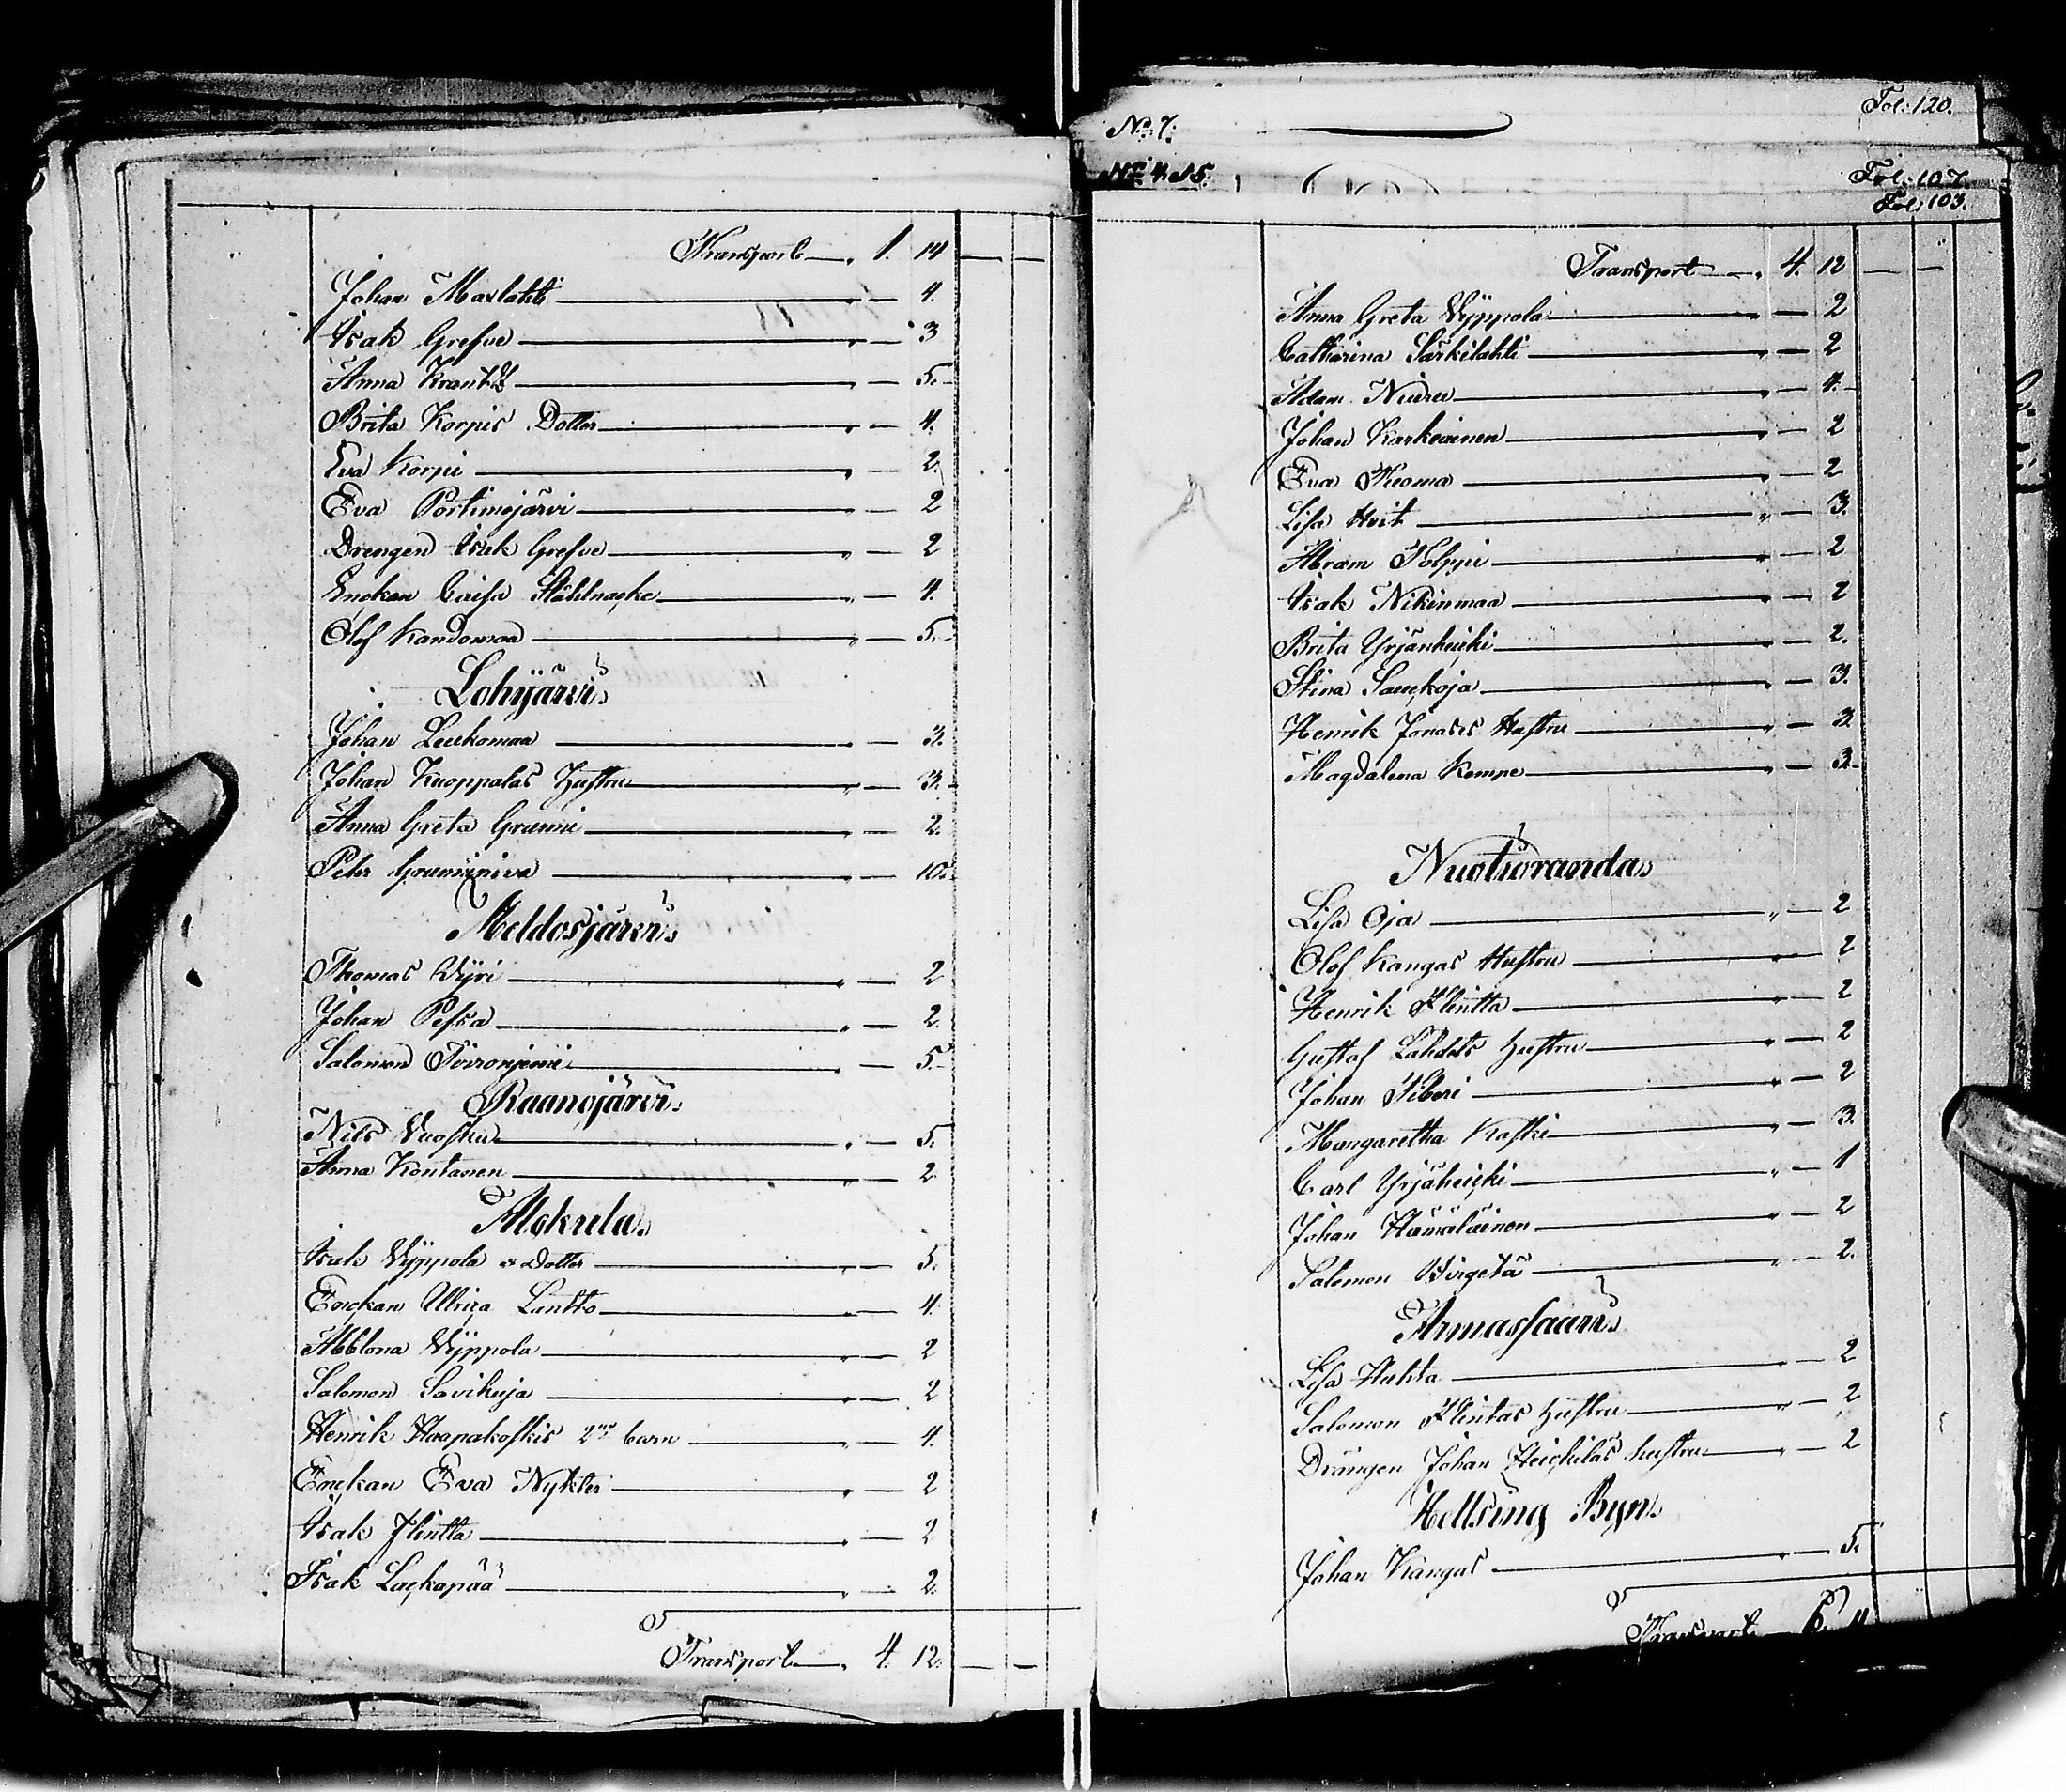 Transport — " 1. 14
Johan Maxlahti " — 4.
Isak Grefve " — 3
Anna Krantz " — 5.
Brita Korpis Dotter " — 4.
Eva Korpi " — 2.
Eva Portimojärvi " — 2
Drengen Isak Grefve " — 2
Enckan Caisa Ståhlnacke " — 4.
Olof Kandomaa " — 5.
Lohijärvi
Johan Leukomaa " — 3.
Johan Kuoppalas Hustru " — 3.
Anna Greta Grunni " — 2.
Pehr " — 10.
Meldosjärvi
Thomas Wyri " — 2
Johan Pessa " — 2.
Salomon " — 5.
Raanojärvi
Nils " — 5.
Anna Kontanen " — 2
Alckula
Isak Wyppola & Dotter " — 5.
Enckan Ulrica Lantto " — 4.
Wyppola " — 2
Salomon Savikuja " — 2
Henrik Haapakoskis 2ne barn " — 4.
Enckan Eva Nykter " — 2
Isak Flintta " — 2
Isak Lackapää " — 2.
Transport " 4. 12.
No: 7. Fol: 120.
No 4. 15. Fol: 107.
Fol: 103.
Transport — " 4. 12
Anna Greta Wyppola " — 2
Catharina Särkilahti " — 2
Adam " — 4.
Johan Karkiainen " — 2
Eva Kuoma " — 2
Lisa Hvit " — 3.
Abram Tolppi " — 2
Isak Nikinmaa " — 2
Brita Yrjänheicki " — 2.
Stina Sauckoja " — 3.
Henrik Jonases Hustru " — 3.
Magdalena Kempe " — 3.
Nuotioranda
Lisa Oja " — 2
Olof Kangas Hustru " — 2
Henrik Flintta " — 2
Gustaf Lahdets Hustru " — 2
Johan Siberi " — 2
Margaretha Koski " — 3.
Carl Yrjäheicki " — 1
Johan Hämäläinen " — 2
Salomon " — 2.
Armassaari
Lisa Huhta " — 2
Salomon Flintas Hustru " — 2
Drängen Johan Heickiläs hustru " — 2
Hellsing Byn
Johan Kangas " — 5.
Transport 6. 11